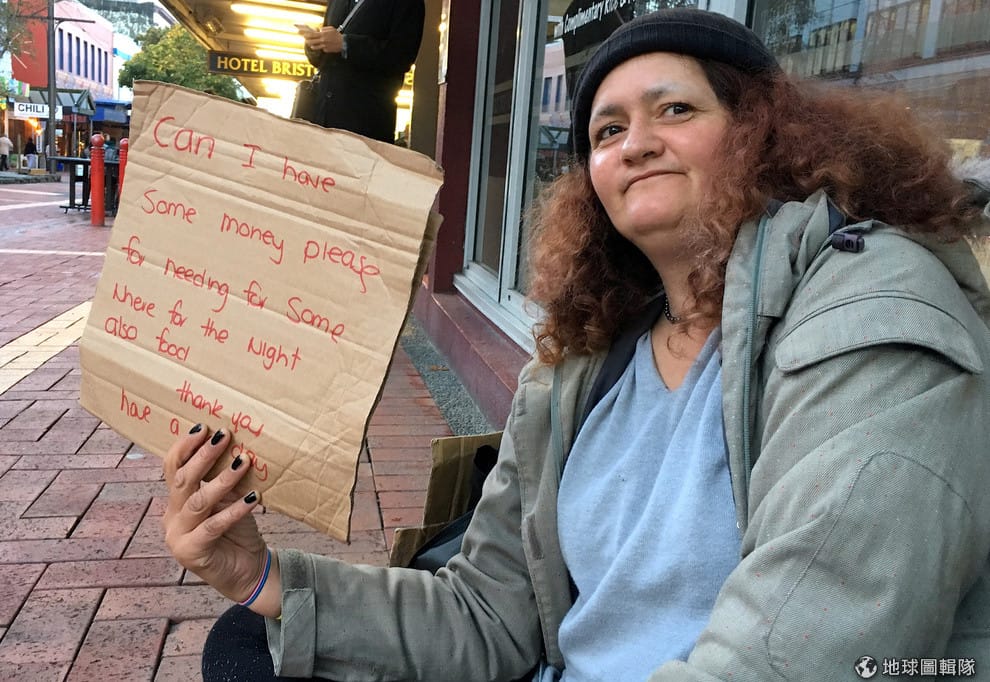 HOTEL BRIST
Complimentary
CHILI
Can I have
Some money please
for needing for Some
Where for the Night
also food
thank you
have a day
地球圖輯隊